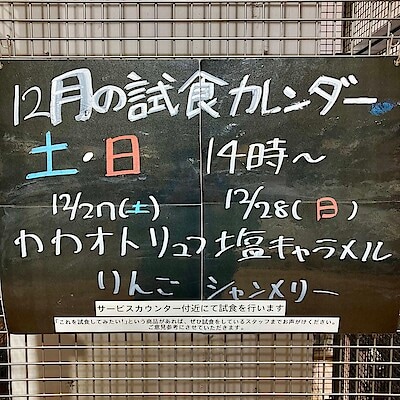 12月の試食カレンダー
土・日 14時〜
12/27(土) 12/28(日)
カカオトリュフ 塩キャラメル
りんご シャンメリー
サービスカウンター付近にて試食を行います
「これを試食してみたい!」という商品があれば、ぜひ試食をしているスタッフまでお声がけください。
ご意見参考にさせていただきます。